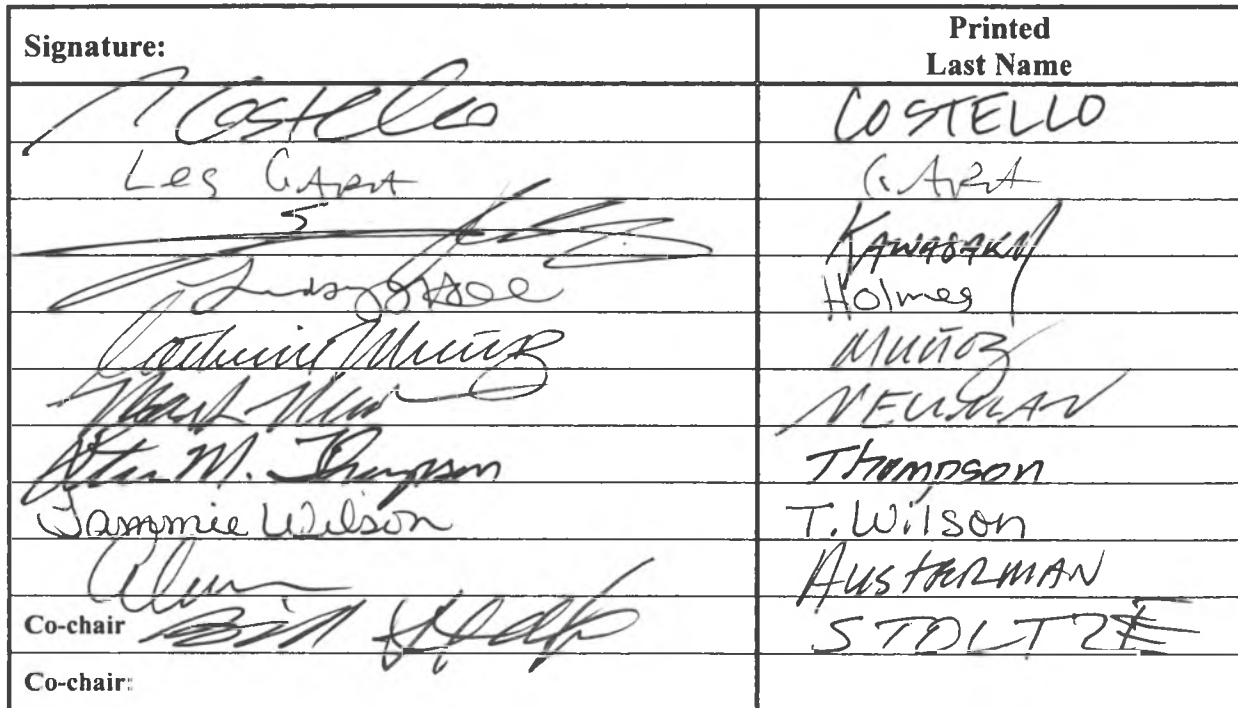 Signature: Printed
Last Name
Costello COSTELLO
Les GARA GARA
KAWASAKI
Holmes
Catherine Muñoz MUÑOZ
Mark NEUMAN
M. Thompson Thompson
Tammie Wilson T. Wilson
AUSTERMAN
Co-chair Bill STOLTZE
Co-chair: